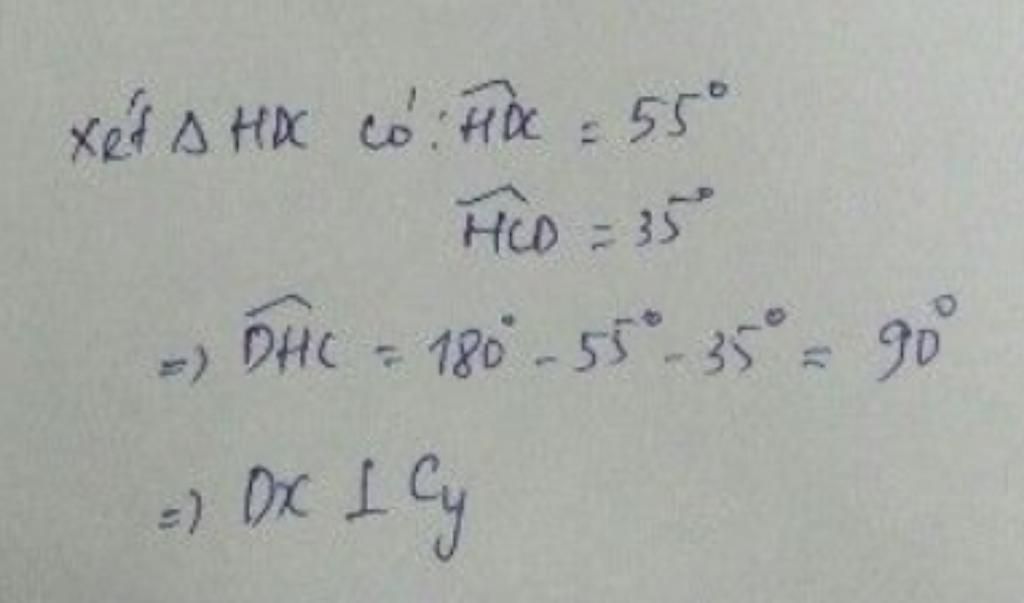 Xét Δ HDC có: \widehat{HDC} = 55°
\widehat{HCD} = 35°
=> \widehat{DHC} = 180° - 55° - 35° = 90°
=> Dx ⊥ Cy